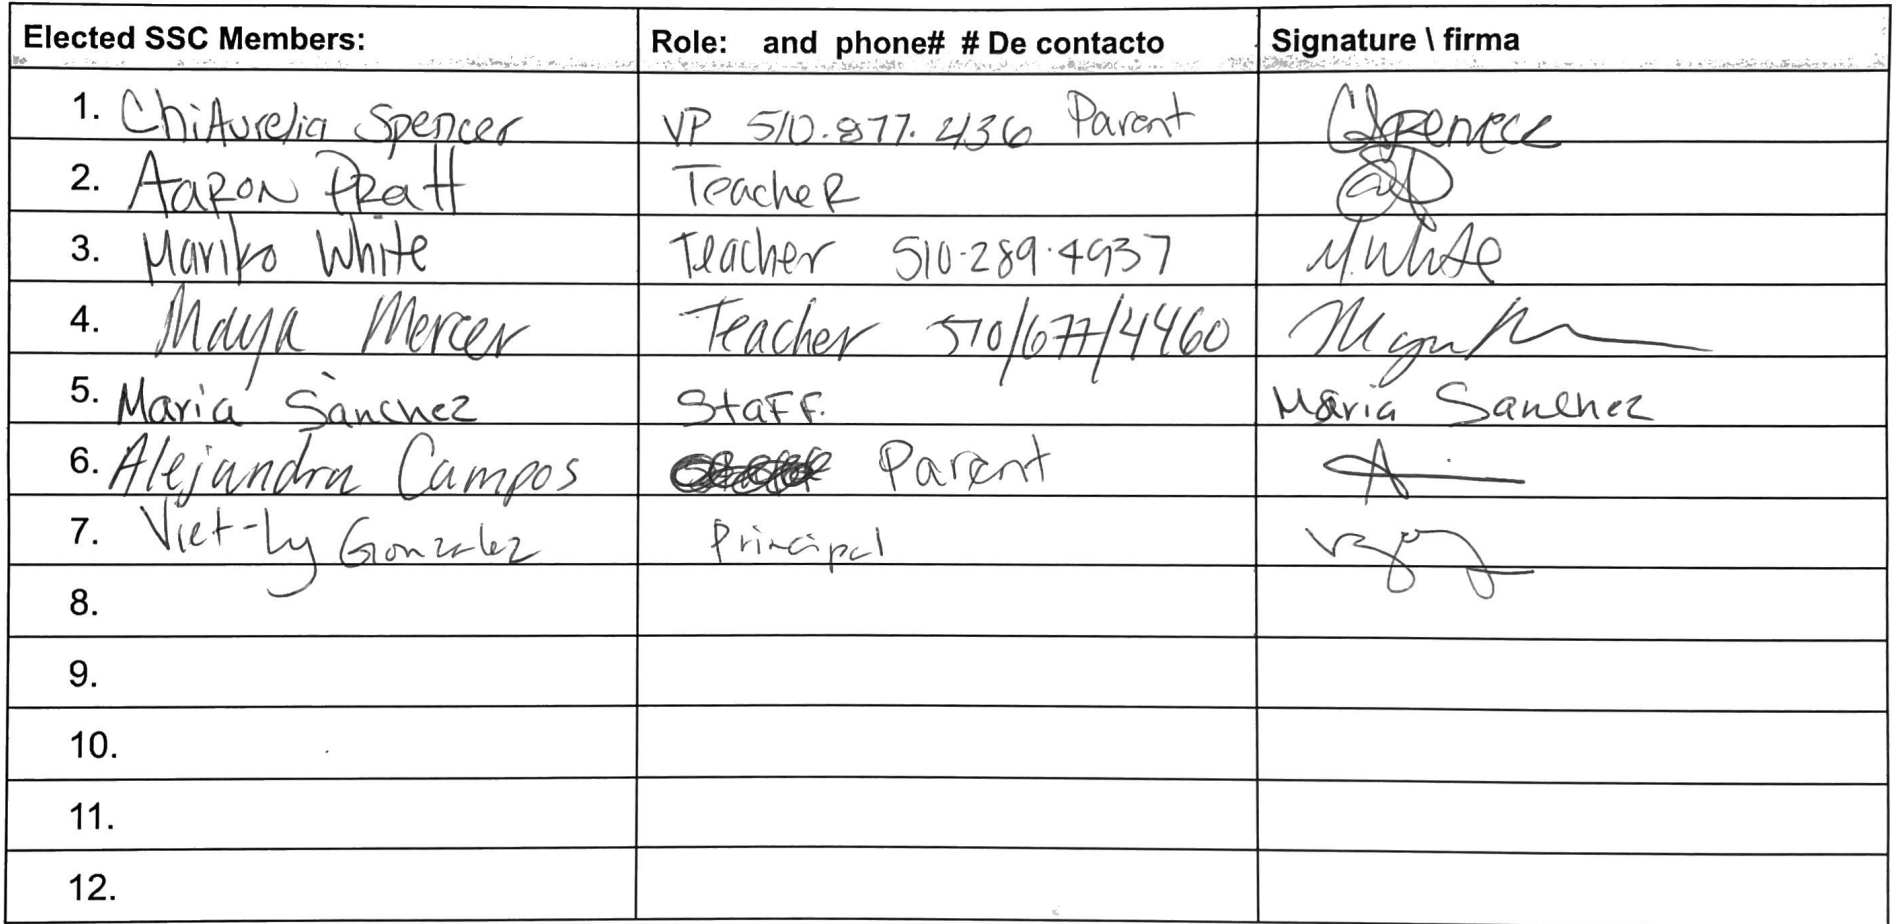 Elected SSC Members: Role: and phone# # De contacto Signature \ firma
1. ChiAurelia Spencer VP 510.877.2436 Parent CSpencer
2. AaRON PRatt TeacheR
3. Mariko White Teacher 510-289-4937 M.White
4. Maya Mercer Teacher 510/677/4460
5. Maria Sànchez StaFF. Maria Sanchez
6. Alejandra Campos Parent
7. Viet-Ly Gonzalez Principal
8.
9.
10.
11.
12.